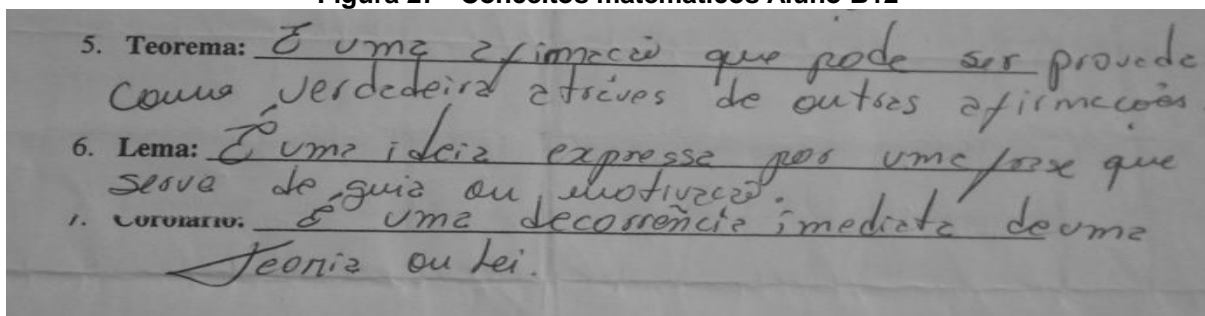 Figura 27 - Conceitos matemáticos Aluno B12
5. Teorema: É uma afimação que pode ser provada
como verdadeira atráves de outras afirmações.
6. Lema: É uma ideia expressa por uma frase que
serve de guia ou motivação.
7. Corolário: É uma decorrência imediata de uma
Teoria ou Lei.